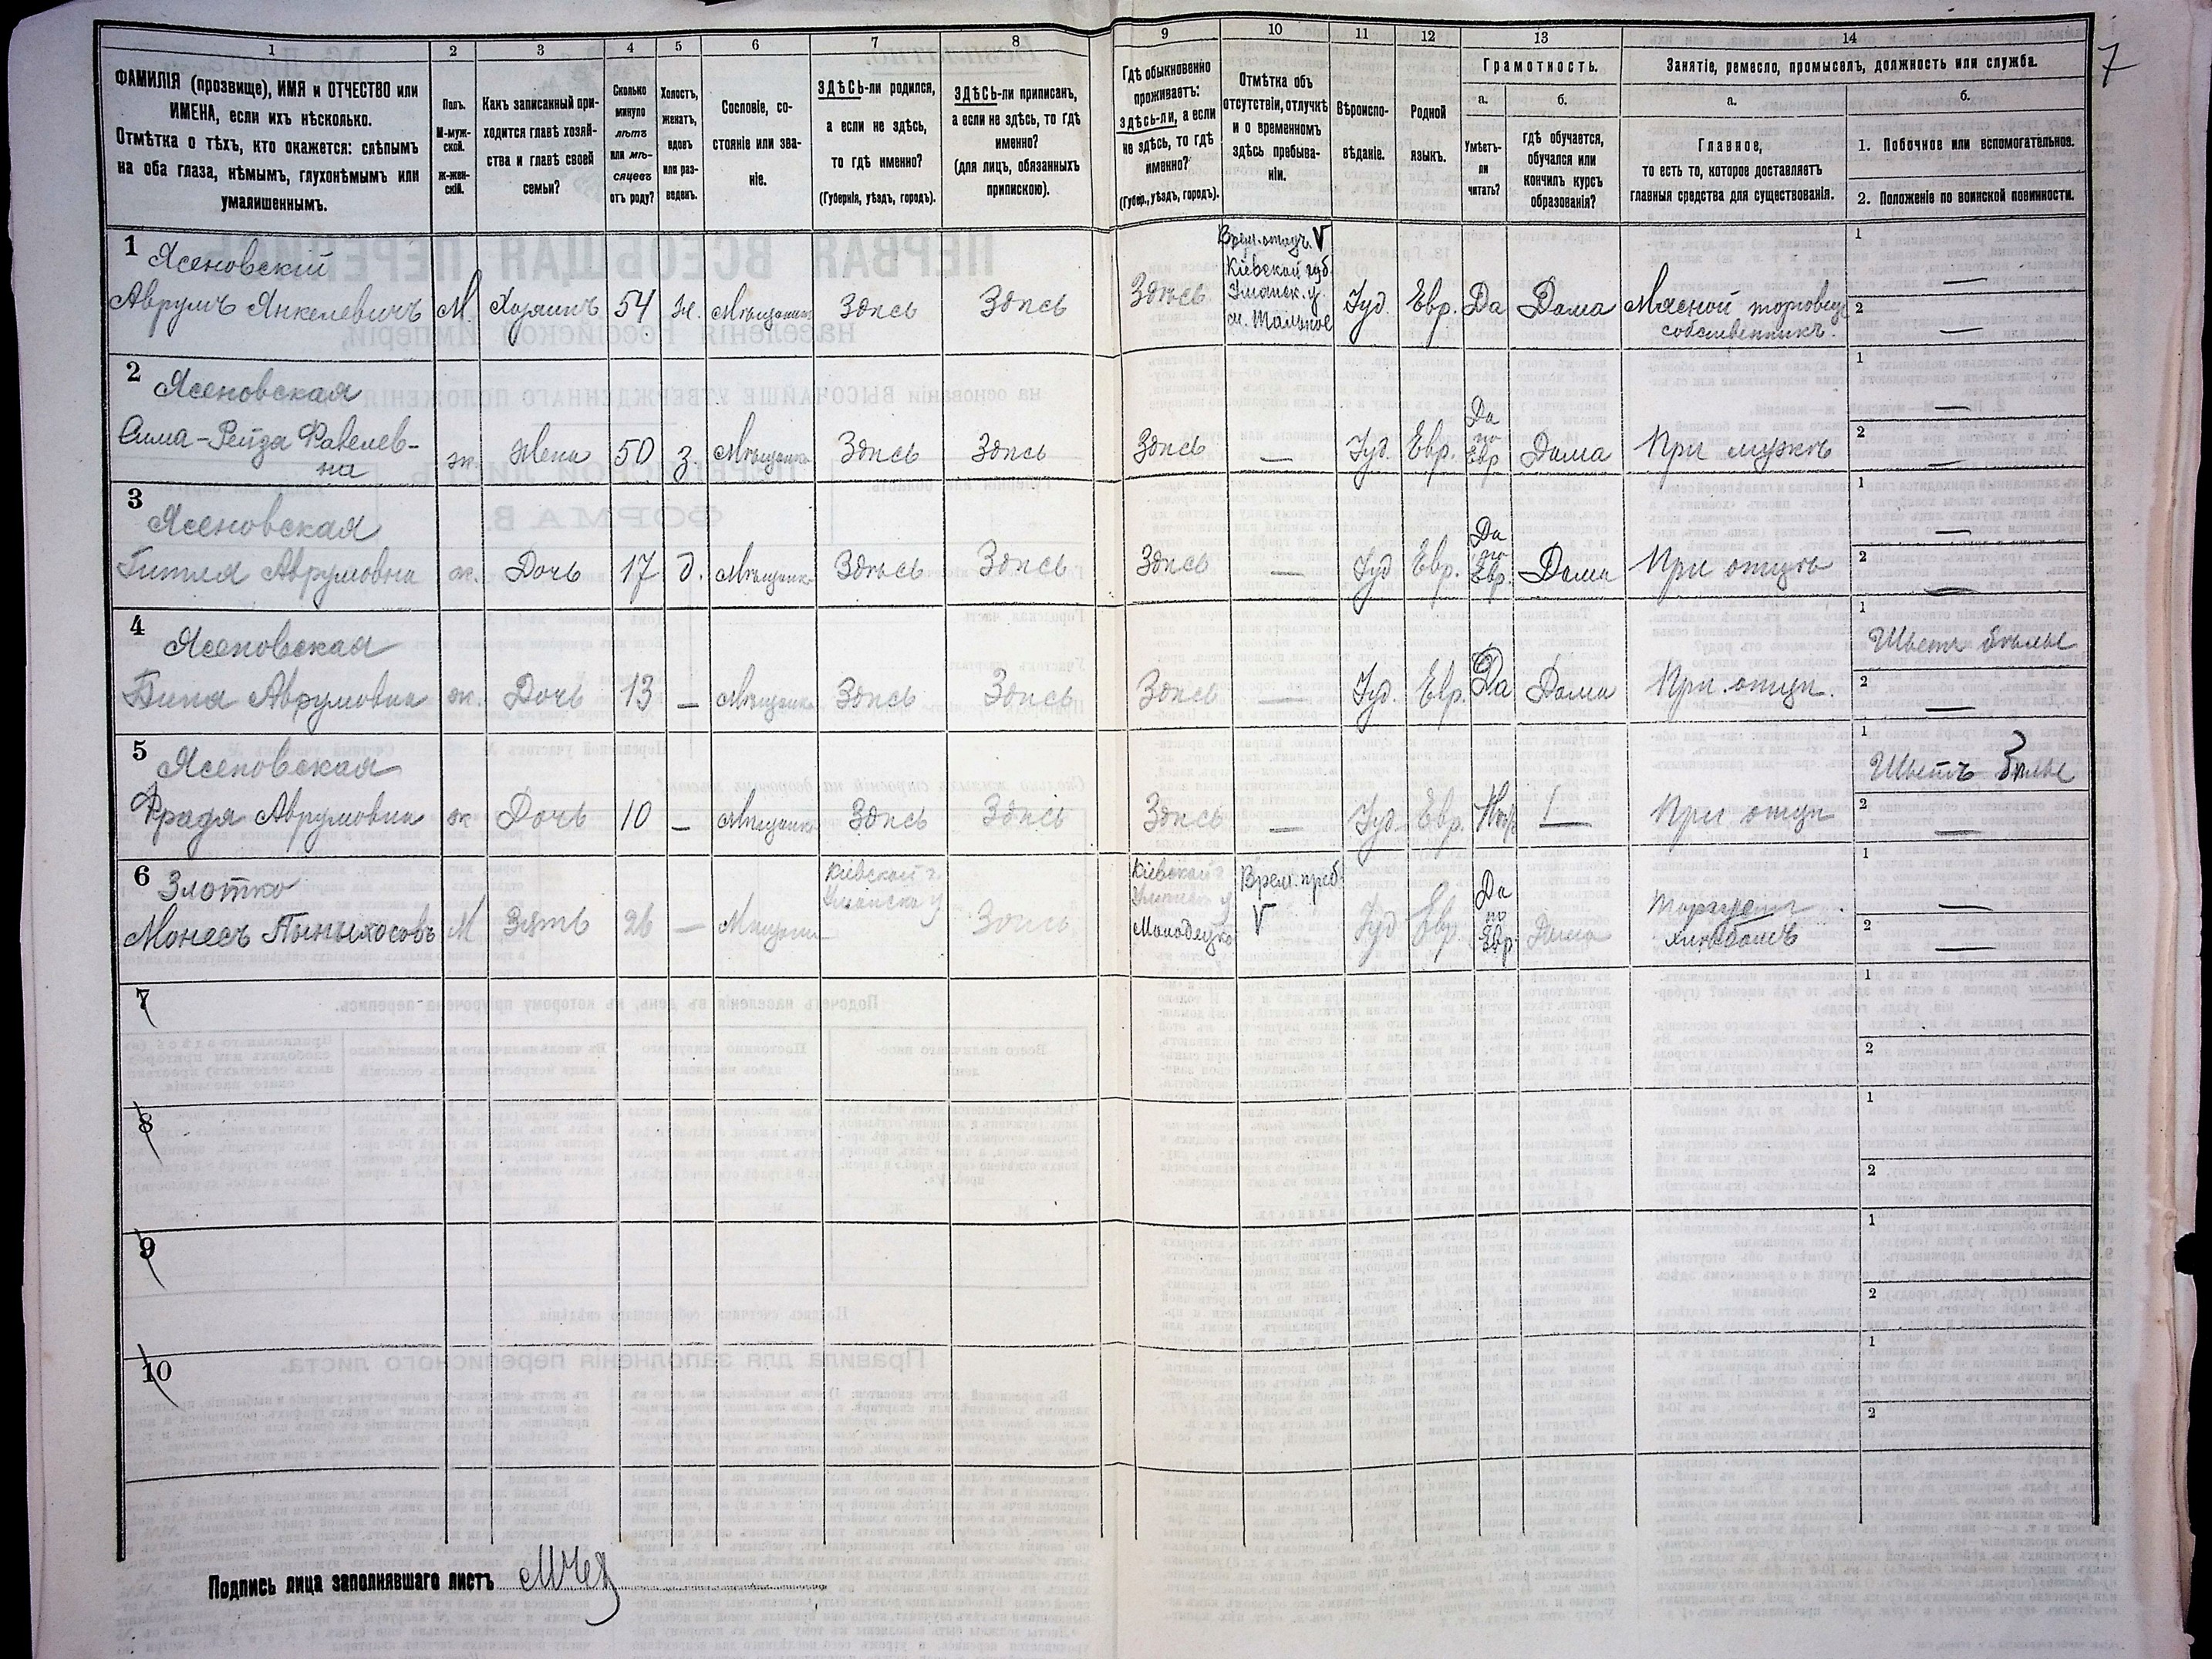 1 2 3 4 5 6 7 8 9 10 11 12 13 14
7
ФАМИЛІЯ (прозвище), ИМЯ и ОТЧЕСТВО или
ИМЕНА, если ихъ нѣсколько.
Отмѣтка о тѣхъ, кто окажется: слѣпымъ
на оба глаза, нѣмымъ, глухонѣмымъ или
умалишеннымъ.
Полъ.
М-муж-
ской.
ж-жен-
скій.
Какъ записанный при-
ходится главѣ хозяй-
ства и главѣ своей
семьи?
Сколько
минуло
лѣтъ
или мѣ-
сяцевъ
отъ роду?
Холостъ,
женатъ,
вдовъ
или раз-
веденъ.
Сословіе, со-
стояніе или зва-
ніе.
ЗДѢСЬ-ли родился,
а если не здѣсь,
то гдѣ именно?
(Губернія, уѣздъ, городъ).
ЗДѢСЬ-ли приписанъ,
а если не здѣсь, то гдѣ
именно?
(для лицъ, обязанныхъ
припискою).
Гдѣ обыкновенно
проживаетъ:
здѣсь-ли, а если
не здѣсь, то гдѣ
именно?
(Губер., уѣздъ, городъ).
Отмѣтка объ
отсутствіи, отлучкѣ
и о временномъ
здѣсь пребыва-
ніи.
Вѣроиспо-
вѣданіе.
Родной
языкъ.
Грамотность.
а.
Умѣетъ-
ли
читать?
б.
гдѣ обучается,
обучался или
кончилъ курсъ
образованія?
Занятіе, ремесло, промыселъ, должность или служба.
а.
Главное,
то есть то, которое доставляетъ
главныя средства для существованія.
б.
1. Побочное или вспомогательное.
2. Положеніе по воинской повинности.
1 Ясеновскій
Аврумъ Янкелевичъ М. Хозяинъ 54 ж. Мѣщанинъ Здѣсь Здѣсь Здѣсь
V
Кіевской губ.
Уманск. у.
м. Тальное
Іуд. Евр. Да Дома Мясной торговецъ
собственникъ.
1 —
2 —
2 Ясеновская
Сима-Рейза
на ж. Жена 50 з. Мѣщанка Здѣсь Здѣсь Здѣсь — Іуд. Евр.
Да
по
Евр
Дома При мужѣ
1 —
2 —
3 Ясеновская
Гитля Аврумовна ж. Дочь 17 д. Мѣщанка Здѣсь Здѣсь Здѣсь — Іуд Евр.
Да
по
Евр.
Дома При отцѣ
1 —
2 —
4 Ясеновская
Аврумовна ж. Дочь 13 — Мѣщанка Здѣсь Здѣсь Здѣсь — Іуд. Евр. Да Дома При отцѣ.
1 Шьетъ бѣлье
2 —
5 Ясеновская
Фрадя Аврумовна ж Дочь 10 — Мѣщанка Здѣсь Здѣсь Здѣсь — Іуд. Евр. — При отцѣ
1 Шьетъ бѣлье
2 —
6 Злотко
Монесъ М Зять 26 — Мѣщанин
Кіевской г.
Уманска у
Здѣсь
Кіевской г
Уманск у
Времн. преб.
V
Іуд Евр
Да
по
Евр
Дома
Торгуетъ
хлѣбомъ
1 —
2 —
7
1
2
8
1
2
9
1
2
10
1
2
Подпись лица заполнявшаго листъ